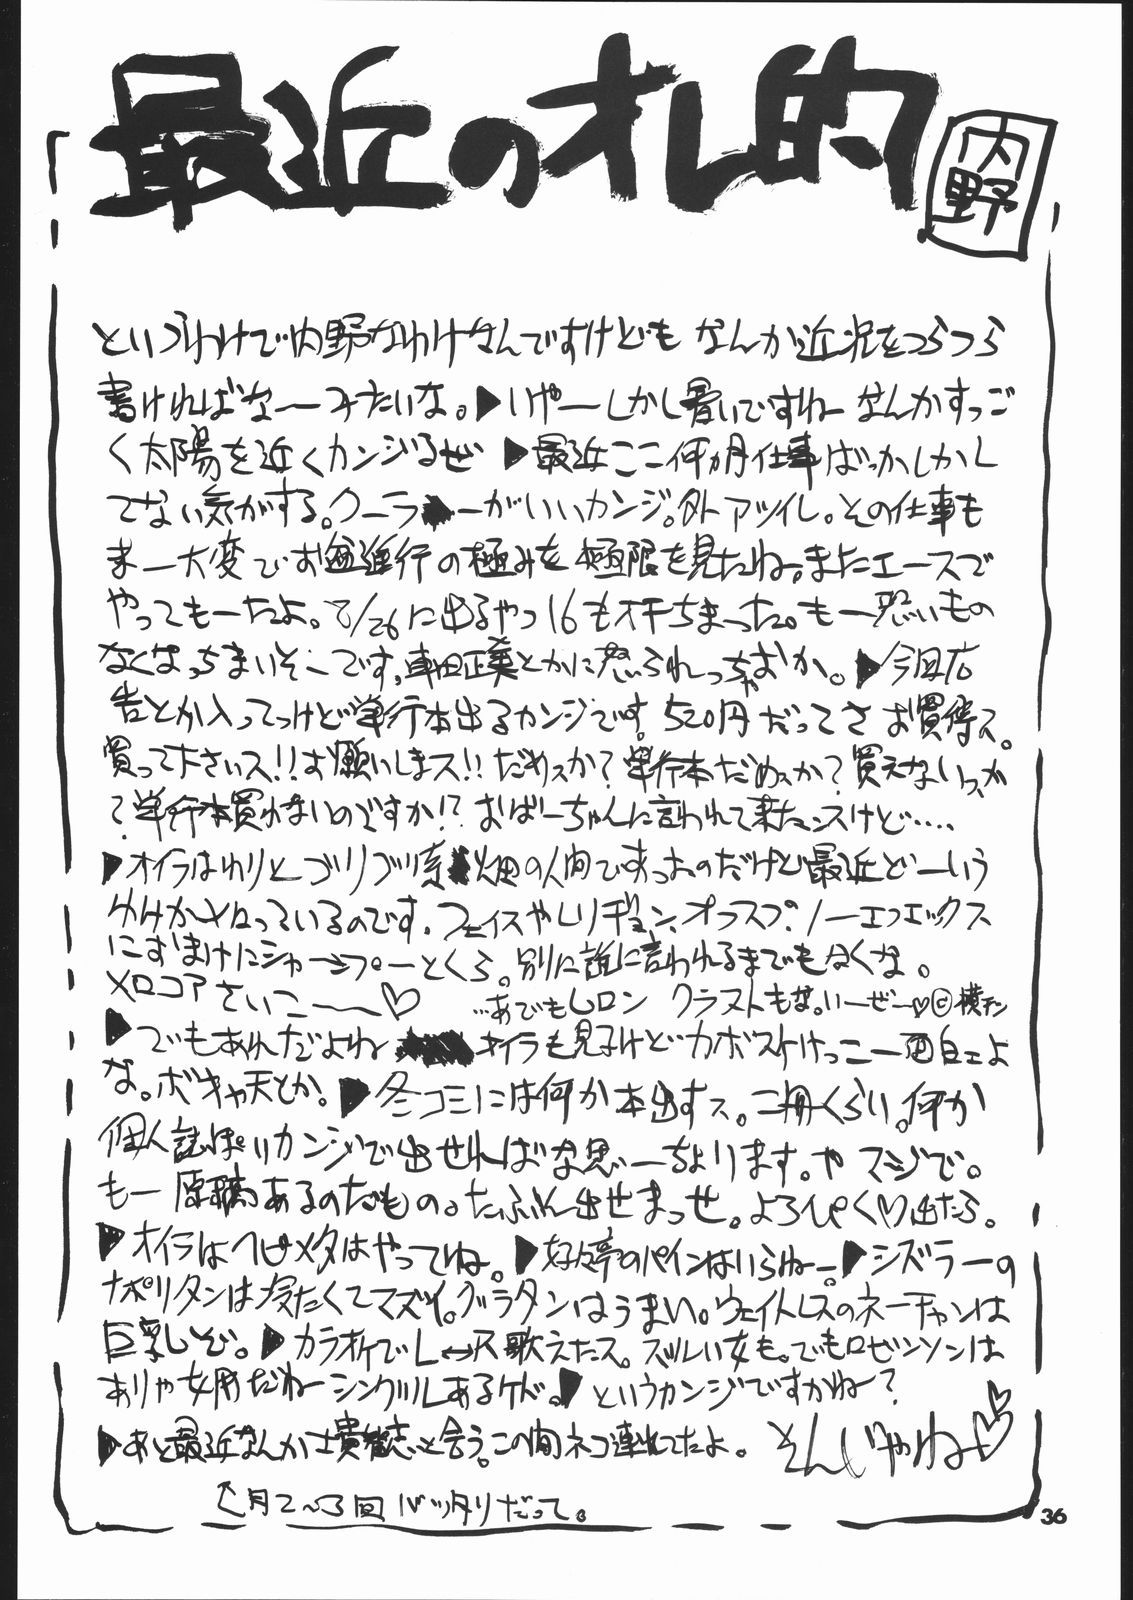 最近のオレ的
内野
というわけで内野なわけなんですけども なんか近況をつらつら
書ければな〜みたいな。▶いやーしかし暑いですねー なんかすっご
く太陽を近くカンジるぜ ▶最近ここ何ヵ月仕事ばっかしかし
てない気がする。クーラーがいいカンジ。外アツイし。その仕事も
まー大変でお進行の極みを極限を見たね。またエースで
やってもーたよ。8/26に出るやつ16もオチちまった。もー恐いもの
なくなっちまいそーです。車田正美とかに怒られっちゃおか。▶今回広
告とか入ってっけど単行本出るカンジです。520円だってさ お買得ス。
買って下さいス!!お願いしまス!!だめスか?単行本だめスか?買えないスか
?単行本買わないのですか!?おばーちゃんに言われて来たンスけど……
▶オイラはわりとゴリゴリ系畑の人間ですったのだけど最近どーいう
わけかメロっているのです。フェイスやレリギョン、オフスプ、ノーエフエックス
におまけにシャープーとくら。別に誰に言われるまでもなくな。
メロコアさいこ〜〜♡ …あでもしロン クラストもな。いーぜー♡©横チン
▶でもあれだよね オイラも見テけどカボスけっこー面白エよ
な。ボキャ天とか。▶冬コミには何か本出すス。二冊くらい。何か
個人誌ぽいカンジで出せればな思ーちょります。や マジで。
もー原稿あるのだもの。たぶん出せまっせ。よろぴく♡出たら。
▶オイラはヘビメタはやってね。▶好々亭のパインはいらねー。▶シズラーの
ナポリタンは冷たくてマズイ。グラタンはうまい。ウェイトレスのネーチャンは
巨乳しぞ。▶カラオケでL↔R歌えたス。ズルい女も。でもロビンソンは
ありゃ女用だねーシングルあるケド。▶というカンジですかねー?
▶あと最近なんか士貴智志と会う。この間ネコ連れてたよ。そんじゃねー♡
↖月2〜3回バッタリだって。
36